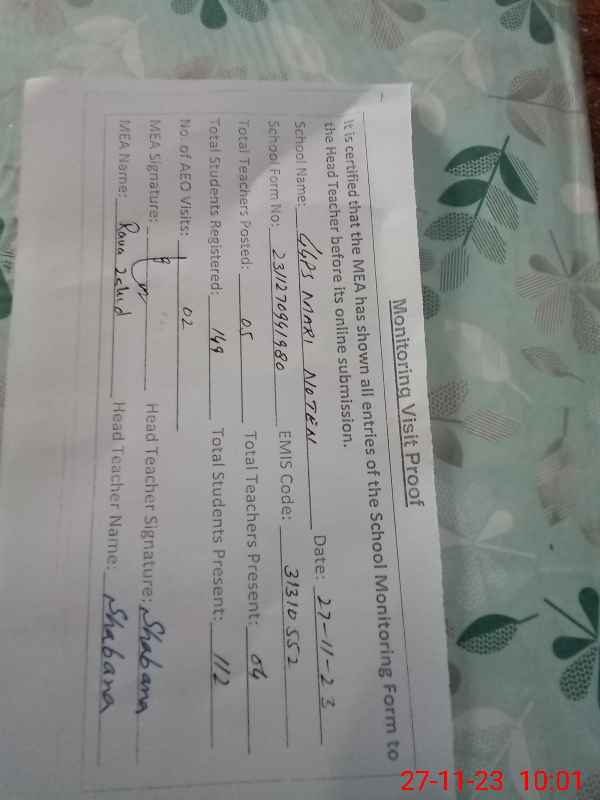 Monitoring Visit Proof
It is certified that the MEA has shown all entries of the School Monitoring Form to
the Head Teacher before its online submission.
School Name: GGPS MARI NOTEN Date: 27-11-23
School Form No: 2311270941980 EMIS Code: 31310552
Total Teachers Posted: 05 Total Teachers Present: 04
Total Students Registered: 149 Total Students Present: 112
No. of AEO Visits: 02
MEA Signature: Head Teacher Signature: Shabana
MEA Name: Rana Zahid Head Teacher Name: Shabana
27-11-23 10:01